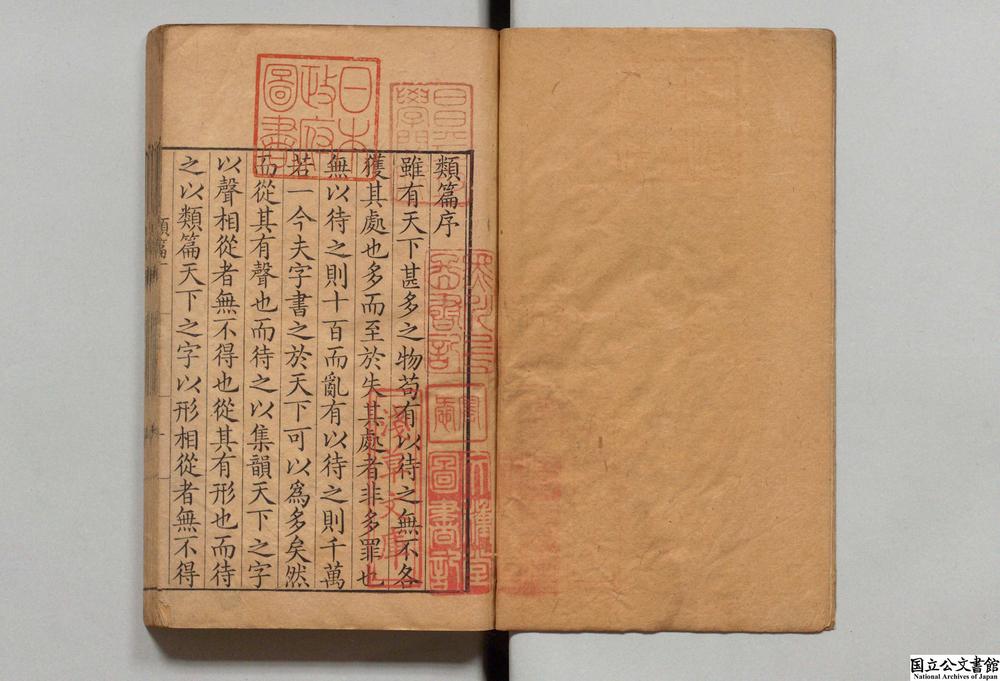 類篇序
雖有天下甚多之物苟有以待之無不各
獲其處也多而至於失其處者非多罪也
無以待之則十百而亂有以待之則千萬
若一今夫字書之於天下可以爲多矣然
而從其有聲也而待之以集韻天下之字
以聲相從者無不得也從其有形也而待
之以類篇天下之字以形相從者無不得
類篇
日本
政府
圖書
淺草文庫
圖書記
国立公文書館
National Archives of Japan